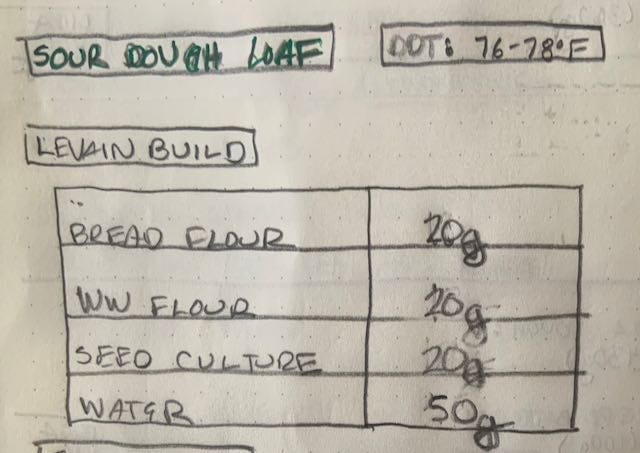 SOUR DOUGH LOAF DDT: 76-78°F
LEVAIN BUILD
BREAD FLOUR 20g
WW FLOUR 20g
SEED CULTURE 20g
WATER 50g